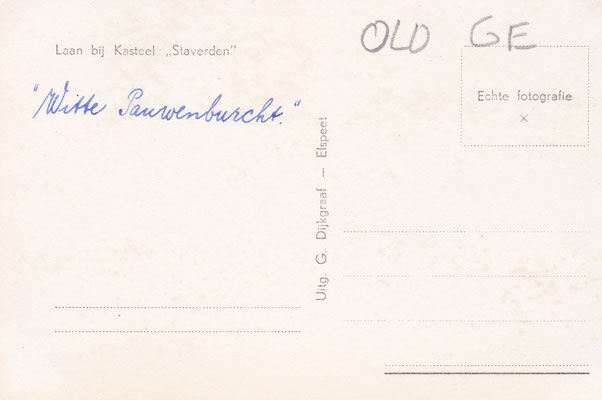 Laan bij Kasteel „Staverden”
OLD GE
"Witte Pauwenburcht."
Echte fotografie
×
Uitg. G. Dijkgraaf — Elspeet